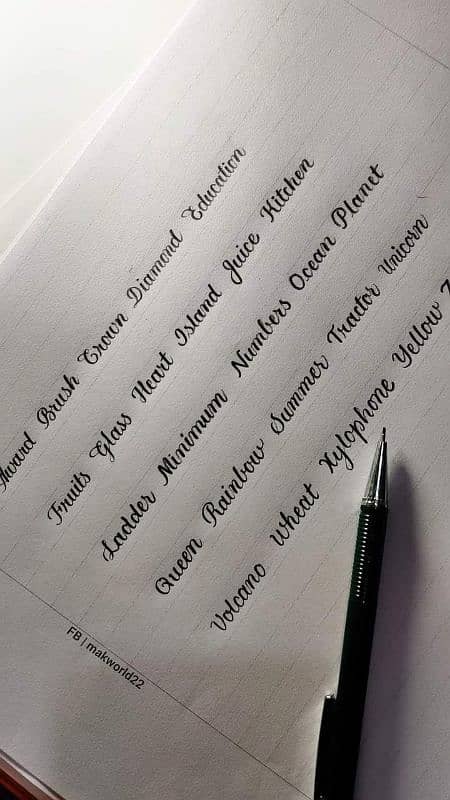 Award Brush Crown Diamond Education
Fruits Glass Heart Island Juice Kitchen
Ladder Minimum Numbers Ocean Planet
Queen Rainbow Summer Tractor Unicorn
Volcano Wheat Xylophone Yellow
FB | makworld22